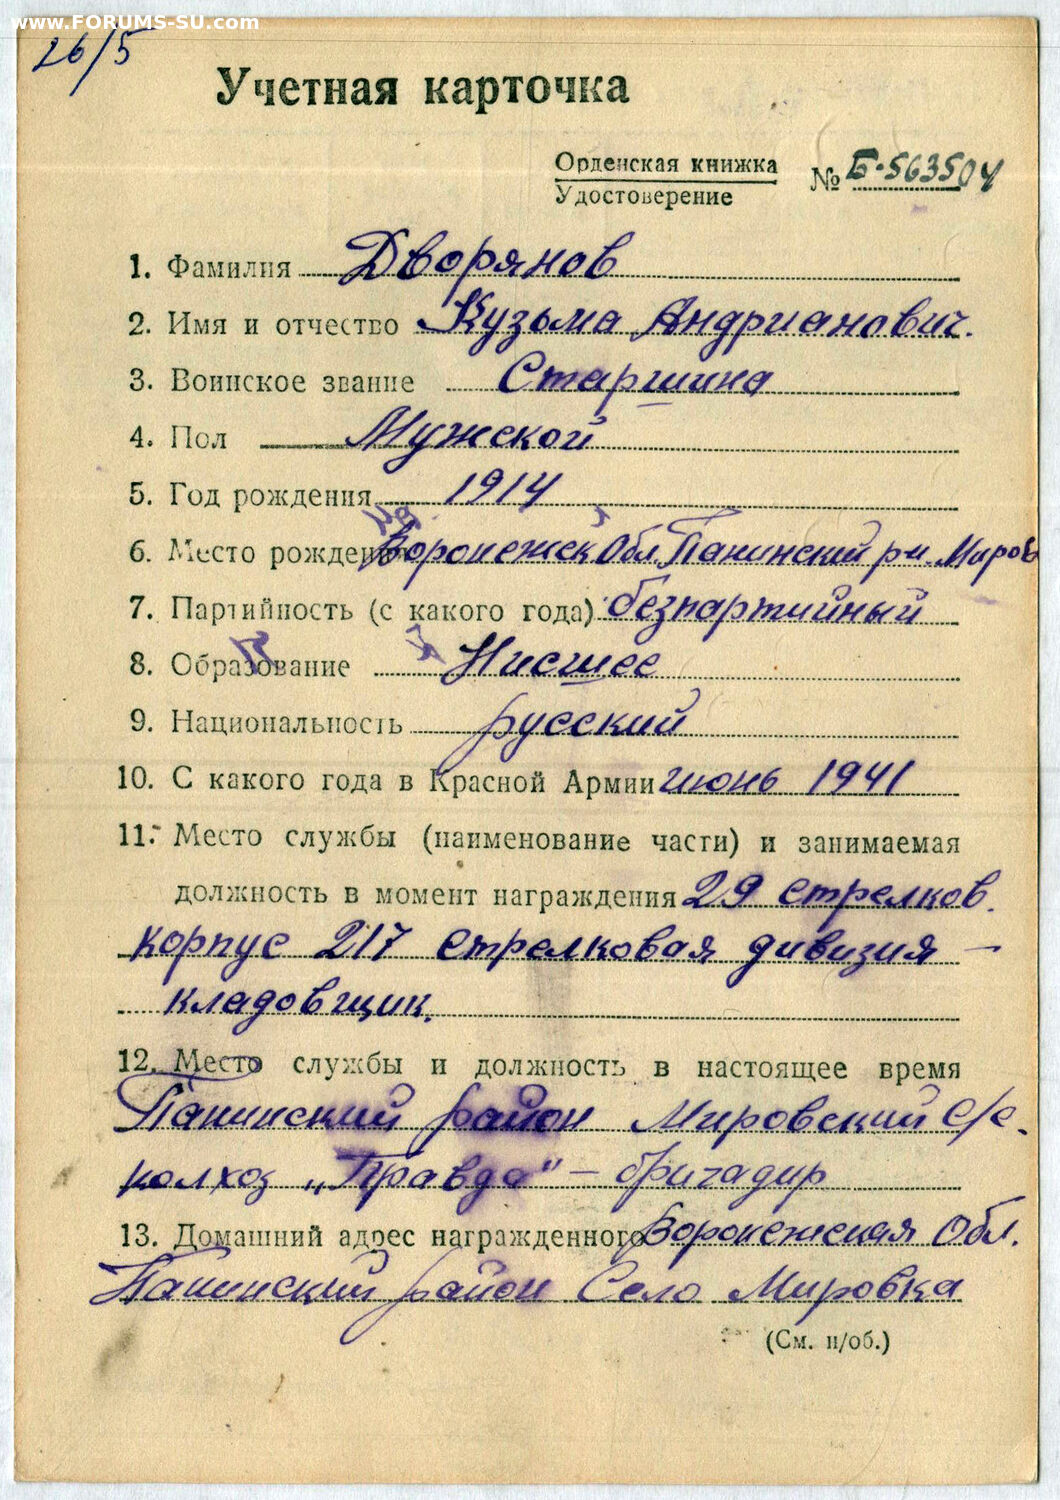 www.FORUMS-SU.com
26/5
Учетная карточка
Орденская книжка
Удостоверение
№ Б-563504
1. Фамилия Дворянов
2. Имя и отчество Кузьма Андрианович.
3. Воинское звание Старшина
4. Пол Мужской
5. Год рождения 1914
6. Место рождения Воронежск Обл. Панинский р-н. Миров
7. Партийность (с какого года) безпартийный
8. Образование Нисшее
9. Национальность русский
10. С какого года в Красной Армии июнь 1941
11. Место службы (наименование части) и занимаемая
должность в момент награждения 29 стрелков.
корпус 217 стрелковая дивизия –
кладовщик.
12. Место службы и должность в настоящее время
Панинский район Мировский с/с.
колхоз „Правда" – бригадир
13. Домашний адрес награжденного Воронежская Обл.
Панинский район Село Мировка
(См. н/об.)